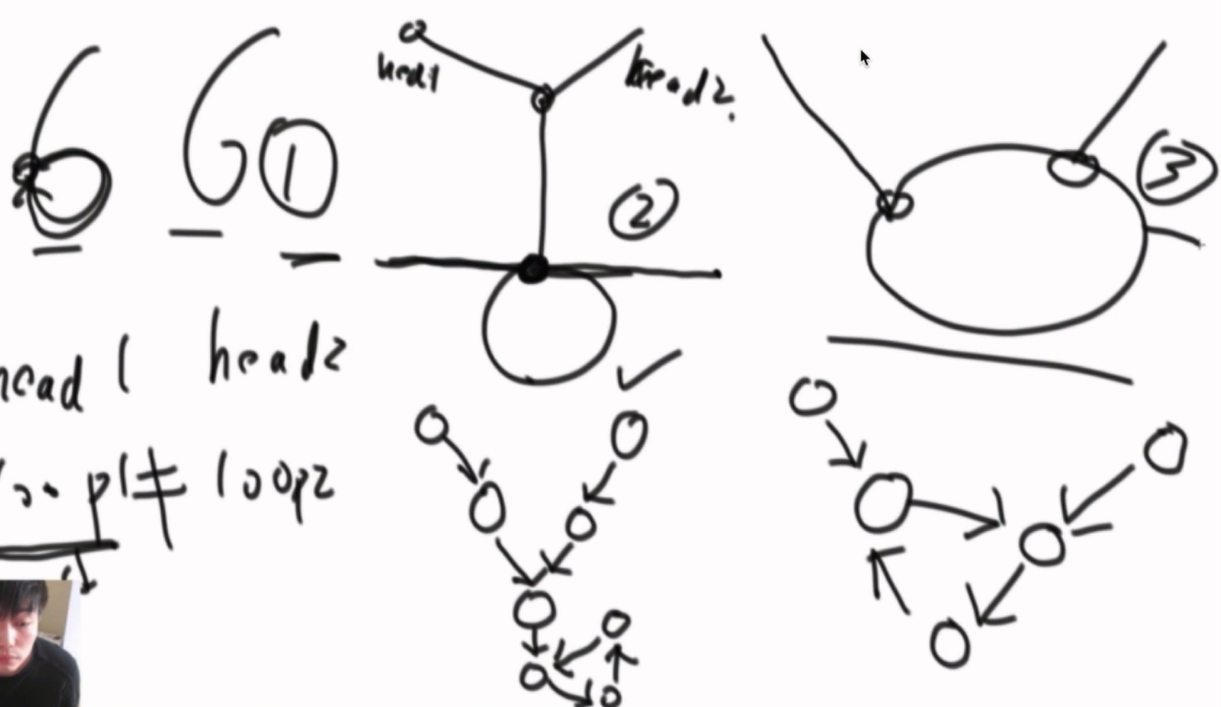 66 ①
head1
head2.
②
③
head1 head2
loop1 ≠ loop2